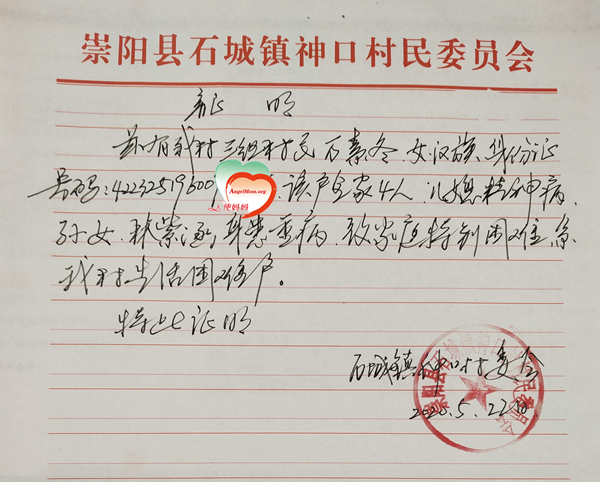 崇阳县石城镇神口村民委员会
证 明
兹有我村三组村民万素冬,女,汉族,身份证
号码:422325196009
AngelMom.org
天使妈妈
,该户全家4人,儿媳精神病,
孙女,林紫涵,身患重病,致家庭特别困难,系
我村生活困难户。
特此证明
石城镇神口村委会
2020.5.22